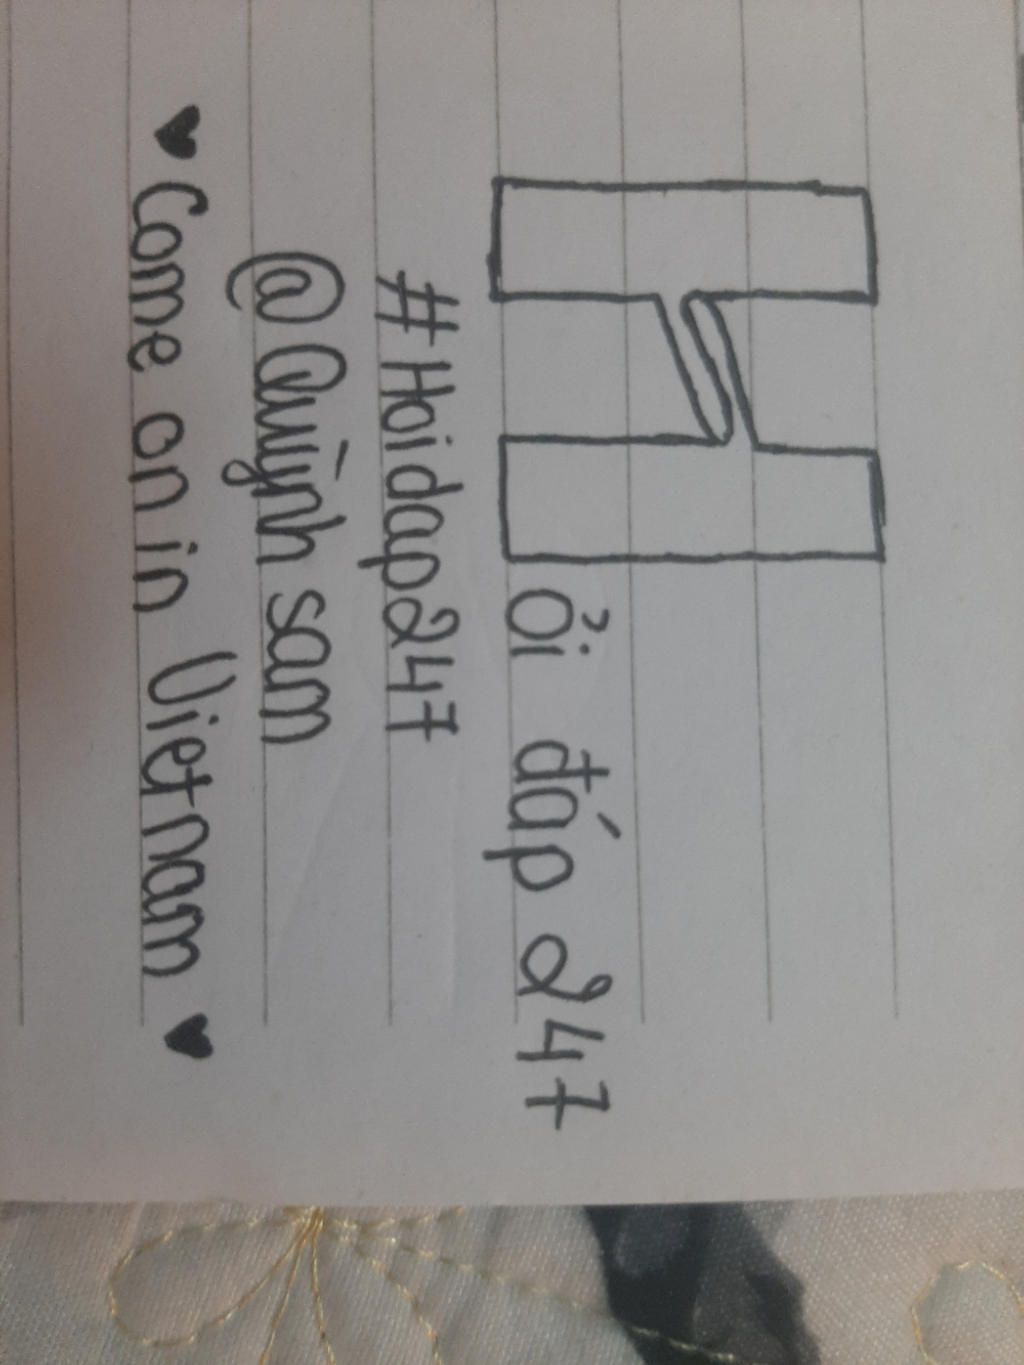 Hỏi đáp 247
#Hoidap247
@Quỳnh sam
♥ Come on in Vietnam ♥